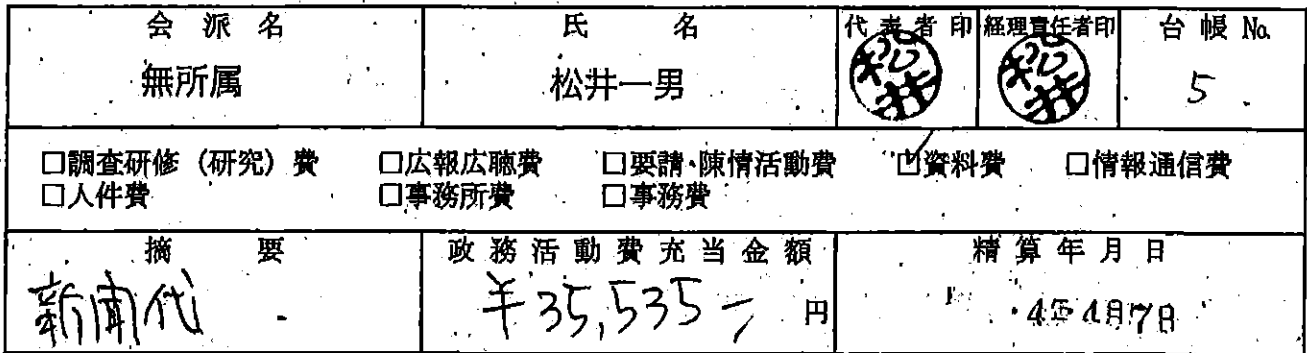 会派名 氏名 代表者印 経理責任者印 台帳No.
無所属 松井一男 松井 松井 5
□調査研修(研究)費 □広報広聴費 □要請・陳情活動費 ☑資料費 □情報通信費
□人件費 □事務所費 □事務費
摘要 政務活動費充当金額 精算年月日
新聞代 ¥35,535- 円 4年4月7日